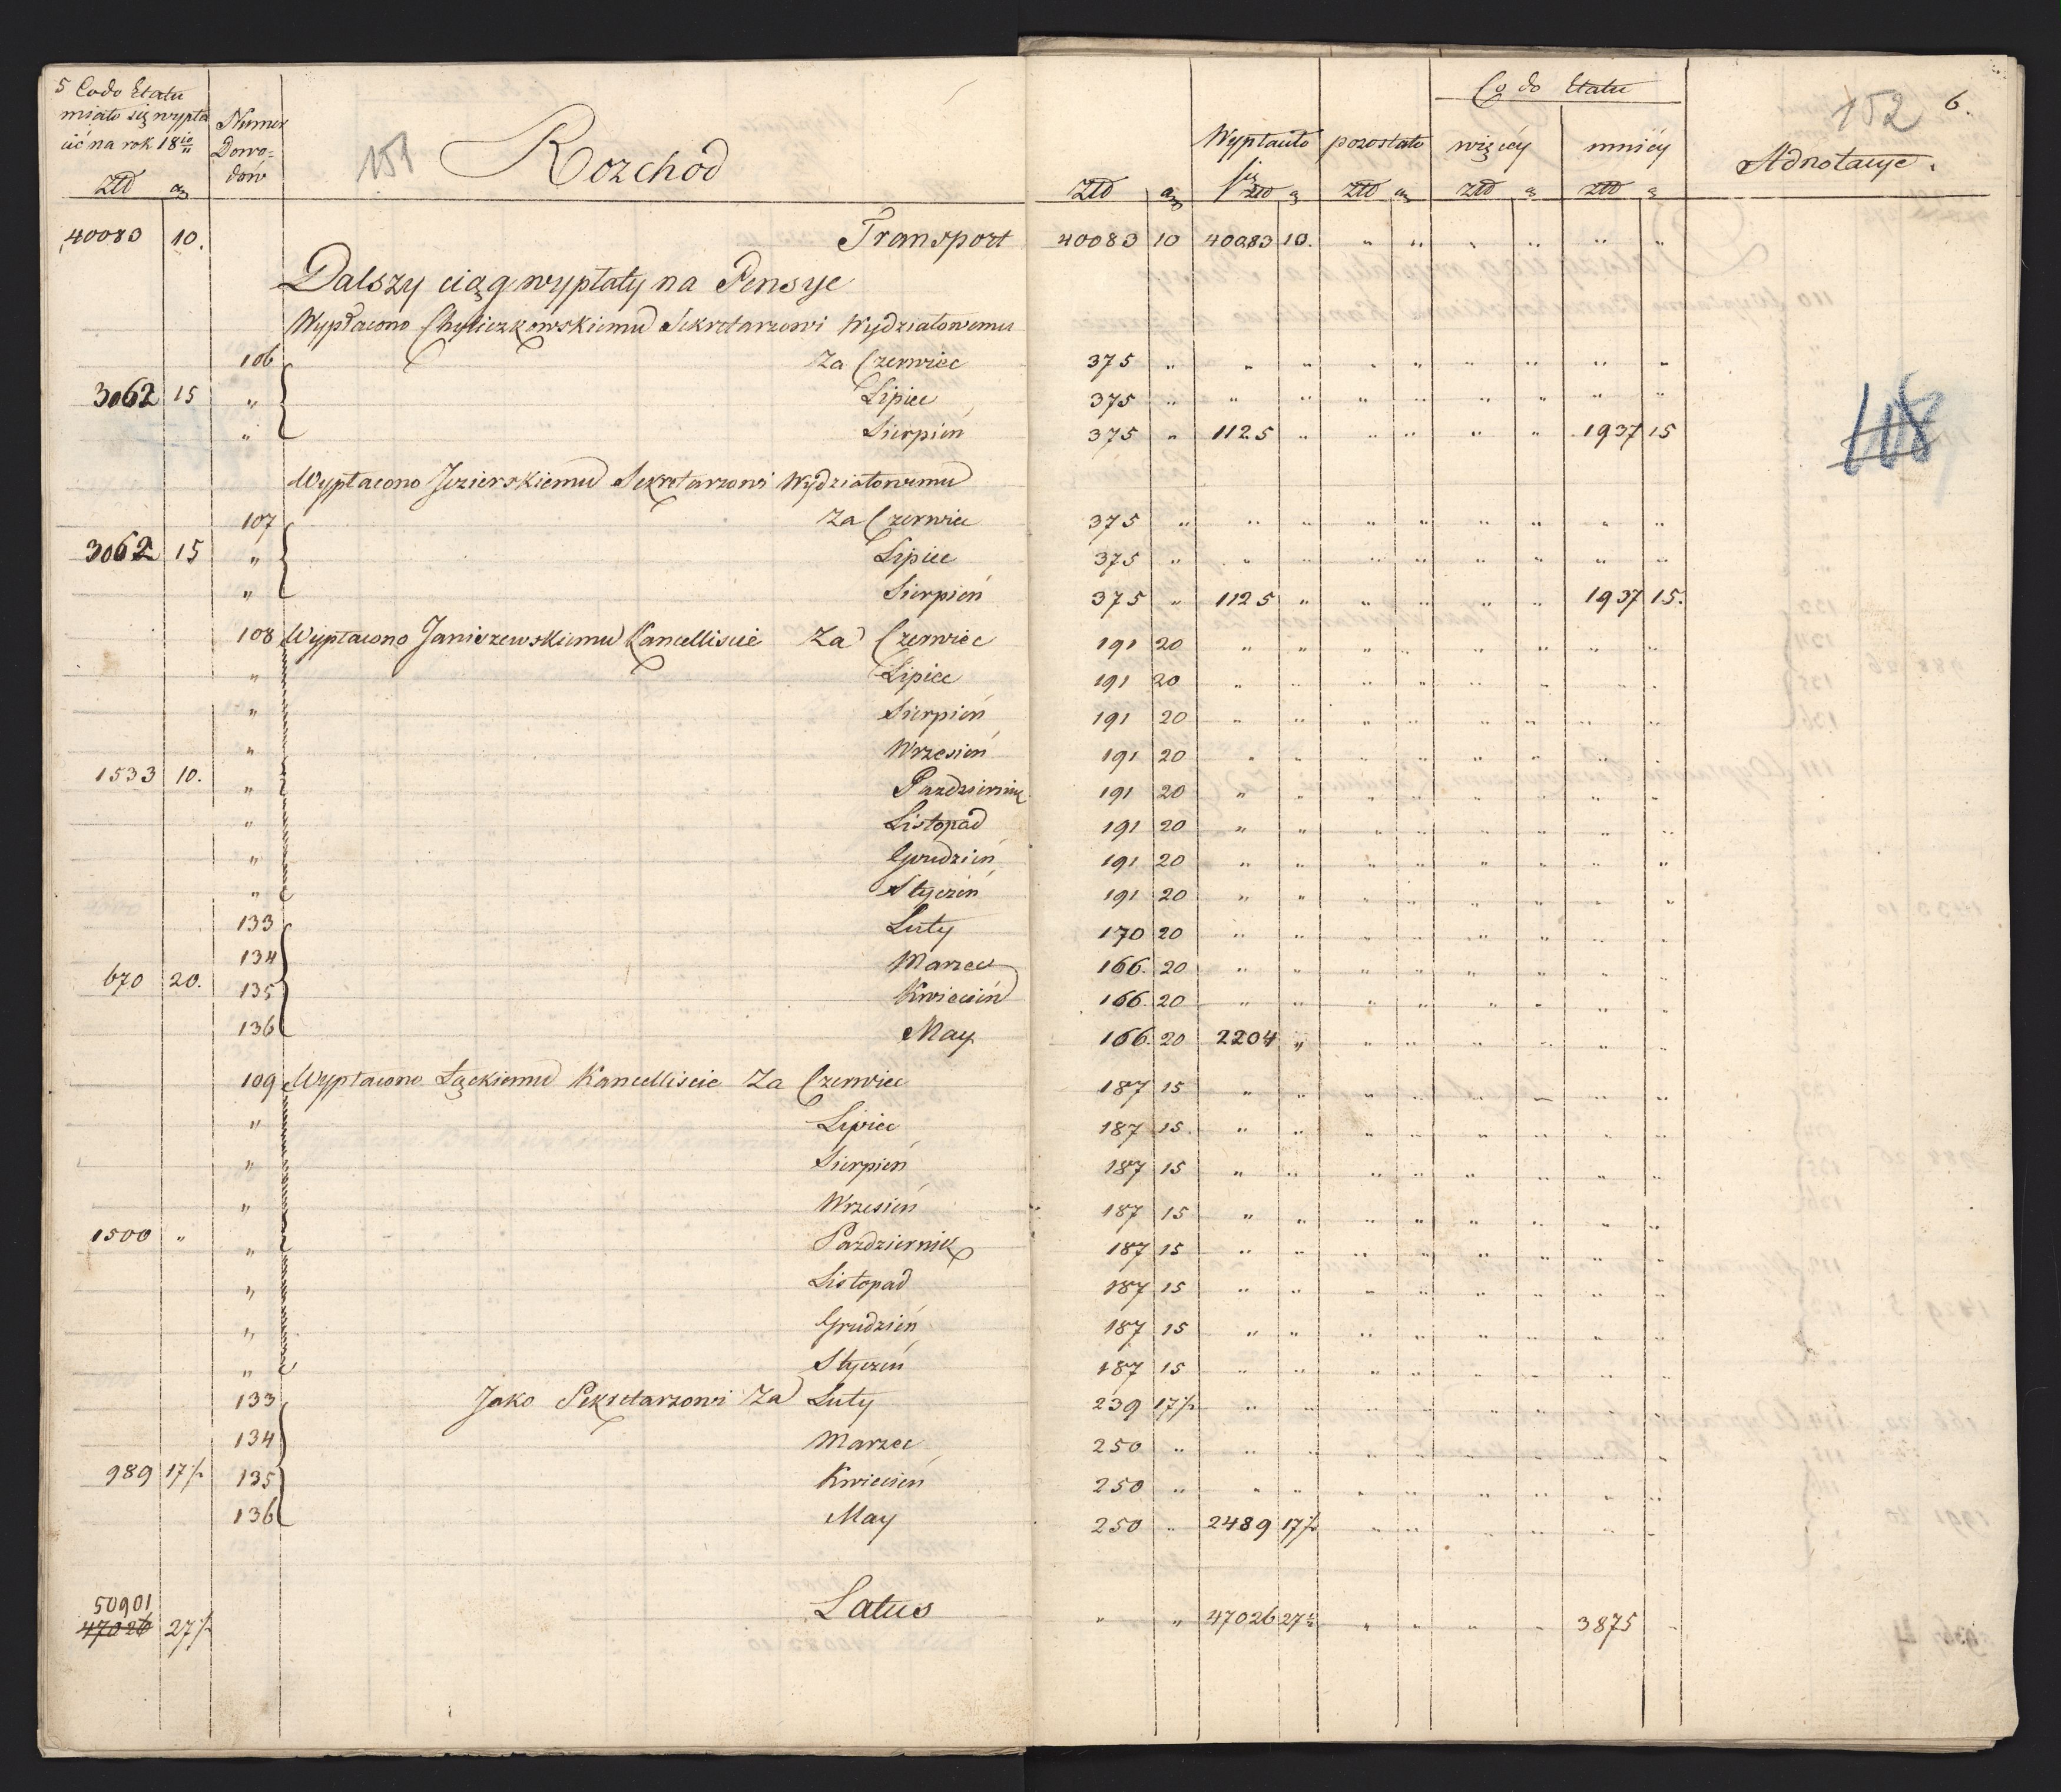 5 Co do Etatu
miało się wypła
cić na rok 18 10/11
Złł gr
Numer
Dowo=
dów
151
Rozchod
Złł gr
Wypłacało się
Złł gr
pozostało
Złł gr
Co do Etatu
więcéy
Złł gr
mniéy
Złł gr
152 6.
Adnotacye.
40083 10. Transport 40083 10 40083 10. " " " " " "
Dalszy ciąg wypłaty na Pensye
Wypłacono Chyliczkowskiemu Sekretarzowi Wydziałowemu
106 Za Czerwiec 375 " " " " " " " " "
3062 15 " Lipiec 375 " " " " " " " " "
" Sierpień 375 " 1125 " " " " " 1937 15
118
Wypłacono Jezierskiemu Sekretarzowi Wydziałowemu
107 Za Czerwiec 375 " " " " " " " " "
3062 15 " Lipiec 375 " " " " " " " " "
" Sierpień 375 " 1125 " " " " " 1937 15.
108 Wypłacono Janiszewskiemu Kancelliście Za Czerwiec 191 20 " " " " " " " "
" Lipiec 191 20 " " " " " " " "
" Sierpień 191 20 " " " " " " " "
" Wrzesień 191 20 " " " " " " " "
1533 10. " Pazdziernik 191 20 " " " " " " " "
" Listopad 191 20 " " " " " " " "
" Grudzień 191 20 " " " " " " " "
" Styczeń 191 20 " " " " " " " "
133 Luty 170 20 " " " " " " " "
134 Marzec 166. 20 " " " " " " " "
670 20. 135 Kwiecień 166. 20 " " " " " " " "
136 May 166. 20 2204 " " " " " " "
109 Wypłacono Łąckiemu Kancelliście Za Czerwiec 187 15 " " " " " " " "
" Lipiec 187 15. " " " " " " " "
" Sierpień 187 15 " " " " " " " "
" Wrzesień 187 15 " " " " " " " "
1500 " " Pazdziernik 187 15 " " " " " " " "
" Listopad 187 15 " " " " " " " "
" Grudzień 187 15 " " " " " " " "
" Styczeń 187 15 " " " " " " " "
133 Jako Sekretarzowi Za Luty 239 17½ " " " " " " " "
134 Marzec 250 " " " " " " " " "
989 17½ 135 Kwiecień 250 " " " " " " " " "
136 May 250 " 2489 17½ " " " " " "
50901
47026 27½ Latus " " 47026 27½ " " " " 3875 "